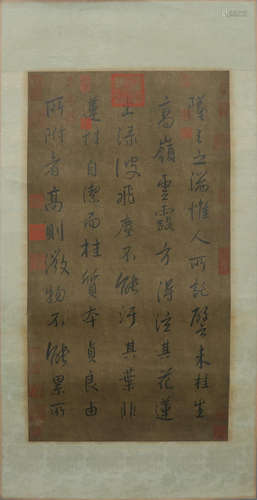 墜之端惟人所託譬夫桂生
高嶺雲露方得泫其花蓮
出淥波飛塵不能汙其葉非
蓮性自潔而桂質本貞良由
所附者高則微物不能累所